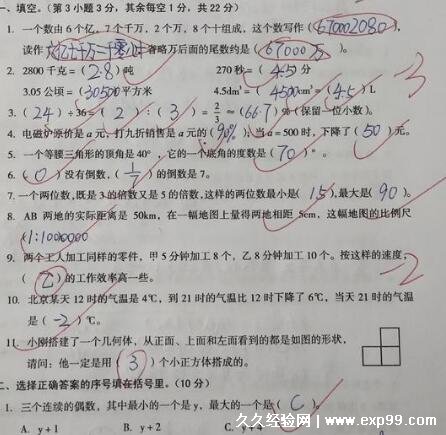 一、填空。(第3小题3分，其余每空1分，共22分)
1. 一个数由6个亿，7个千万，2个万，8个十组成，这个数写作(67000 2080)，
读作(六亿七千万二千零八十)省略万后面的尾数约是(67000万)。
2. 2800千克=(2.8)吨 270秒=(4.5)分
3.05公顷=(30500)平方米 4.5dm³=(4500)cm³=(4.5)L
-3
3. (24)÷36=(2):(3)=2/3≈(66.7)%(保留一位小数)。
4. 电磁炉原价是a元，打九折销售是a元的(90%)；当a=500时，下降了(50)元。
5. 一个等腰三角形的顶角是40°，它的一个底角的度数是(70)°。
6. (0)没有倒数，(1/7)的倒数是7。
7. 一个两位数，既是3的倍数又是5的倍数，这样的两位数最小是(15)，最大是(90)。
8. AB两地的实际距离是50km，在一幅地图上量得两地相距5cm，这幅地图的比例尺
(1:1000000
9. 两个工人加工同样的零件，甲5分钟加工8个，乙8分钟加工10个。按这样的速度，
(乙)的工作效率高一些。
-2
10. 北京某天12时的气温是4℃，到21时的气温比12时下降了6℃，当天21时的气温
是(-2)℃。
11. 小刚搭建了一个几何体，从正面、上面和左面看到的都是如图的形状，
请问：他一定是用(3)个小正方体搭成的。
二、选择正确答案的序号填在括号里。(10分)
1. 三个连续的偶数，其中最小的一个是y，最大的一个是(C)。
A. y+1 B. y+2 C. y+4
久久经验网 www.exp99.com